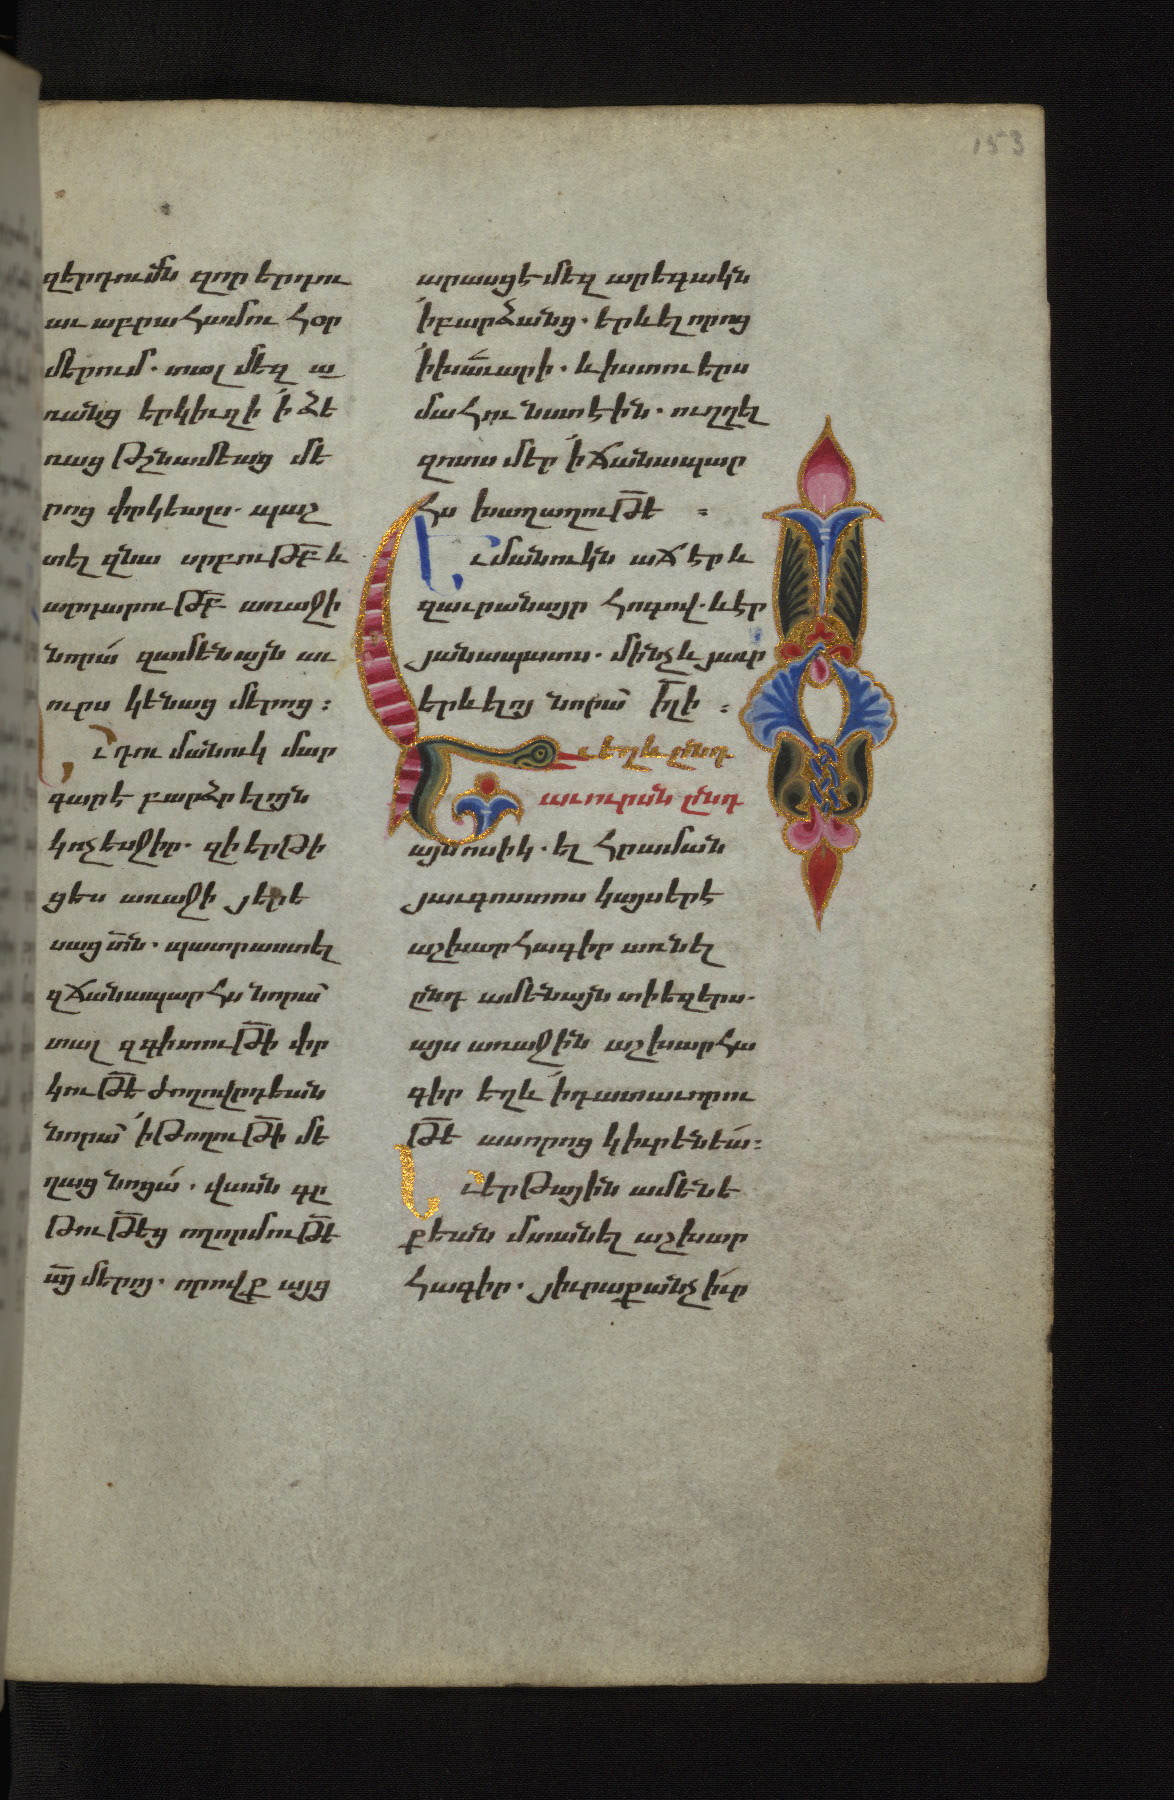 153
զերդումն զոր երդու
աւ աբրահամու հօր
մերում. տալ մեզ ա
ռանց երկիւղի ի ձե
ռաց թշնամեաց մե
րոց փրկեալս. պաշ
տել զնա սրբութբ և
արդարութբ առաջի
նորա զամենայն աւ
ուրս կենաց մերոց :
Եւ դու մանուկ մար
գարէ բարձրելոյն
կոչեսջիր. զի երթի
ցես առաջի յերե
սաց տն. պատրաստել
զճանապարհս նորա
տալ զգիտութի փր
կութե ժողովրդեան
նորա ի թողութի մե
ղաց նոցա. վասն գը
թութեց ողորմութե
այ մերոյ. որովք այց
արասցե մեզ արեգակն
ի բարձանց. երևել որոց
ի խաւարի. և ի ստուերս
մահու նստէին. ուղղել
զոտս մեր ի ճանապար
հս խաղաղութե :
Եւ մանուկն աճէր և
զաւրանայր հոգով. և էր
յանապատս. մինչև յաւր
երևելոյ նորա ի իլի :
Եւ եղև ընդ
աւուրսն ընդ
այնոսիկ. ել հրաման
յաւգոստոս կայսերէ
աշխարհագիր առնել
ընդ ամենայն տիեզերս.
այս առաջին աշխարհա
գիր եղև ի դատաւորու
թե ասորոց կիւրենեա :
Եւ երթային ամենե
քեան մտանել աշխար
հագիր. յիւրաքանչիւր